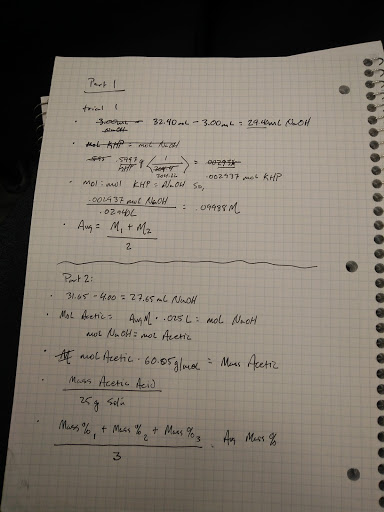 Part 1
trial 1
• 3.00mL 32.40mL - 3.00mL = 29.40mL NaOH
NaOH
• mol KHP = mol NaOH
.5997g 1 = .00293
KHP 204.22 .002937 mol KHP
• mol:mol KHP = NaOH so,
.002937 mol NaOH = .09988 M
.02940L
• Avg = M1 + M2
2
Part 2:
• 31.65 - 4.00 = 27.65 mL NaOH
• Mol Acetic = Avg M · .025 L = mol NaOH
mol NaOH = mol Acetic
• mol Acetic · 60.05 g/mol = Mass Acetic
• Mass Acetic Acid
25 g Sol'n
• Mass %1 + Mass %2 + Mass %3 = Avg Mass %
3